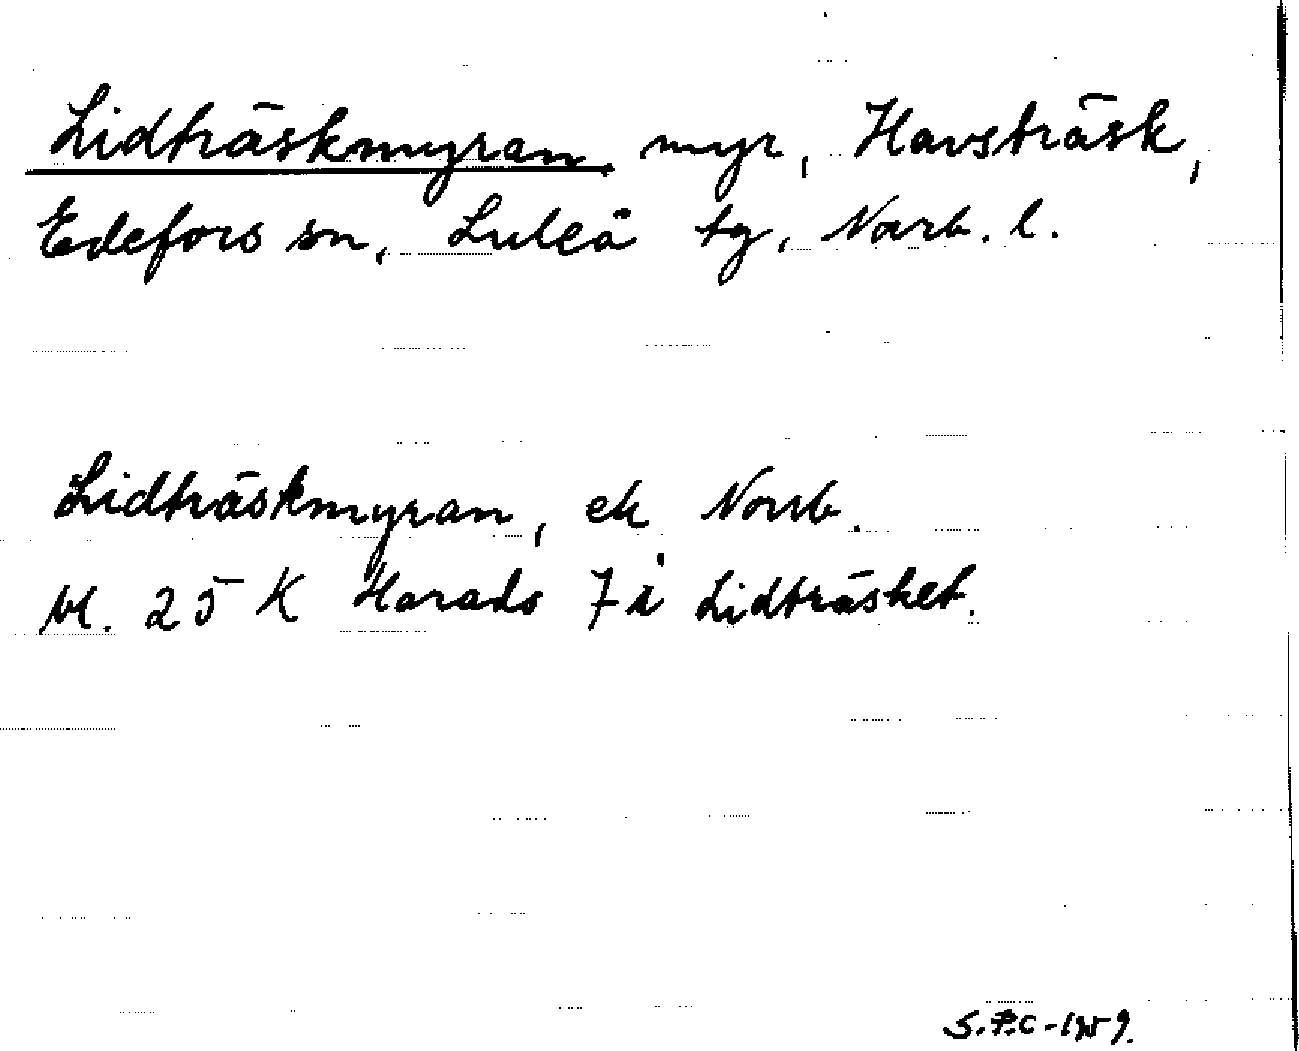 Lidträskmyran, myr, Havsträsk,
Edefors sn, Luleå tg, Norb. l.
Lidträskmyran, ek Norrb.
bl. 25 K Harads 7 i Lidträsket.